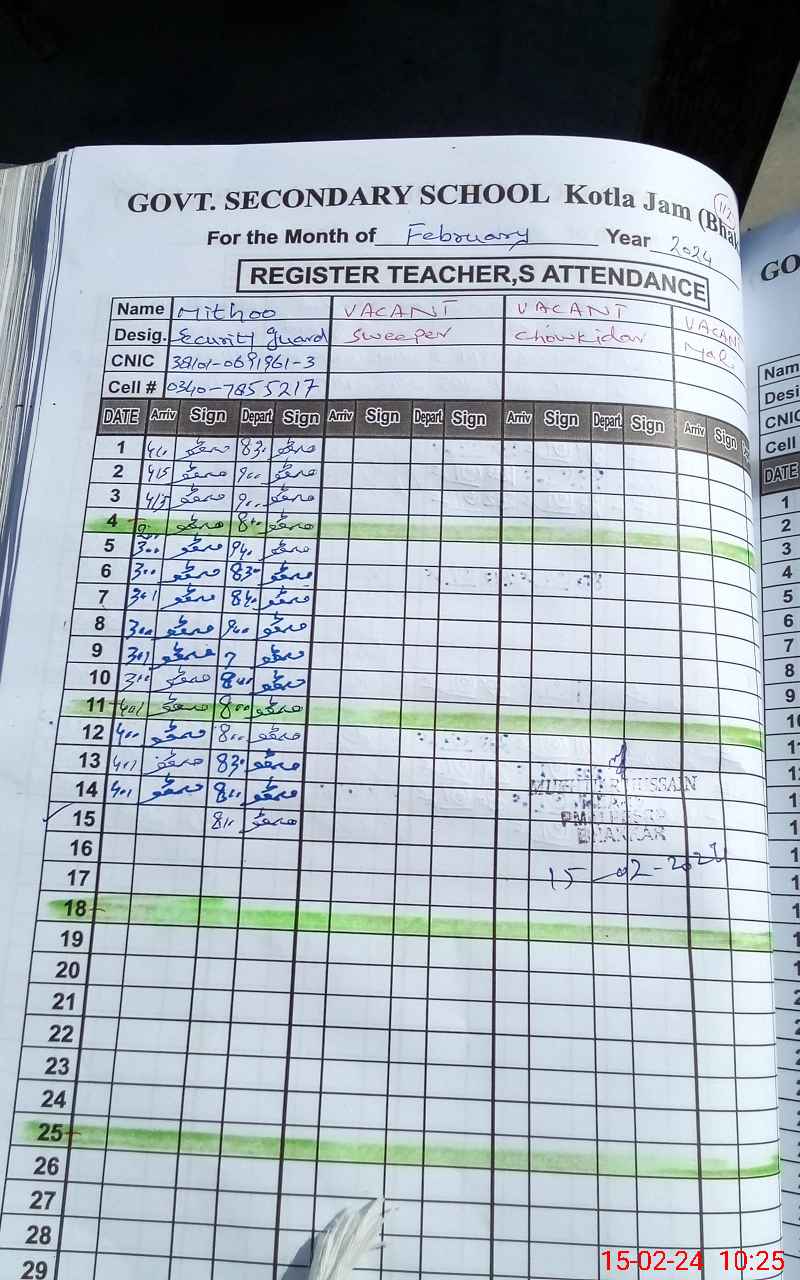 GOVT. SECONDARY SCHOOL Kotla Jam (Bhak
For the Month of February Year 2024
REGISTER TEACHER,S ATTENDANCE
Name Mithoo VACANT VACANT VACANT
Desig. Security guard Sweeper Chowkidar
CNIC 38101-0691961-3
Cell # 0340-7855217
DATE Arriv Sign Depart Sign Arriv Sign Depart Sign Arriv Sign Depart Sign Arriv Sign
1 مٹھو 830 مٹھو
2 415 مٹھو 900 مٹھو
3 415 مٹھو 900 مٹھو
4 مٹھو 800 مٹھو
5 300 مٹھو 940 مٹھو
6 300 مٹھو 830 مٹھو
7 301 مٹھو 840 مٹھو
8 300 مٹھو 900 مٹھو
9 301 مٹھو مٹھو
10 300 مٹھو 800 مٹھو
11 401 مٹھو 800 مٹھو
12 400 مٹھو 800 مٹھو
13 401 مٹھو 830 مٹھو
14 401 مٹھو 811 مٹھو
HUSSAIN
15 811 مٹھو
BHAKKAR
16
15-02-2024
17
18
19
20
21
22
23
24
25
26
27
28
29
GO
Nam
Desi
CNIC
Cell
DATE
1
2
3
4
5
6
7
8
9
15-02-24 10:25